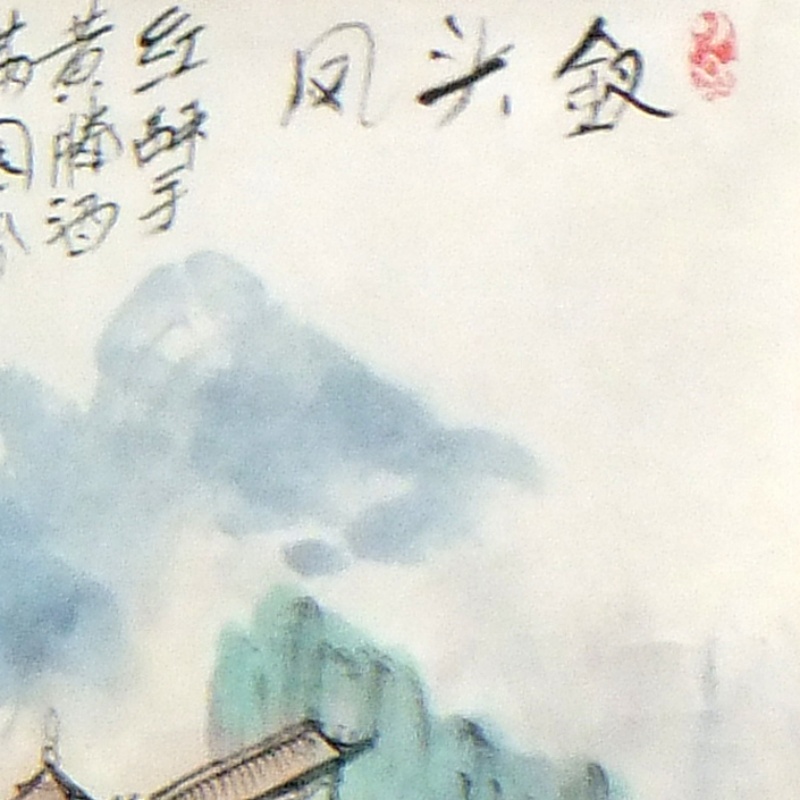 釵头凤
红酥手
黄滕酒
满园